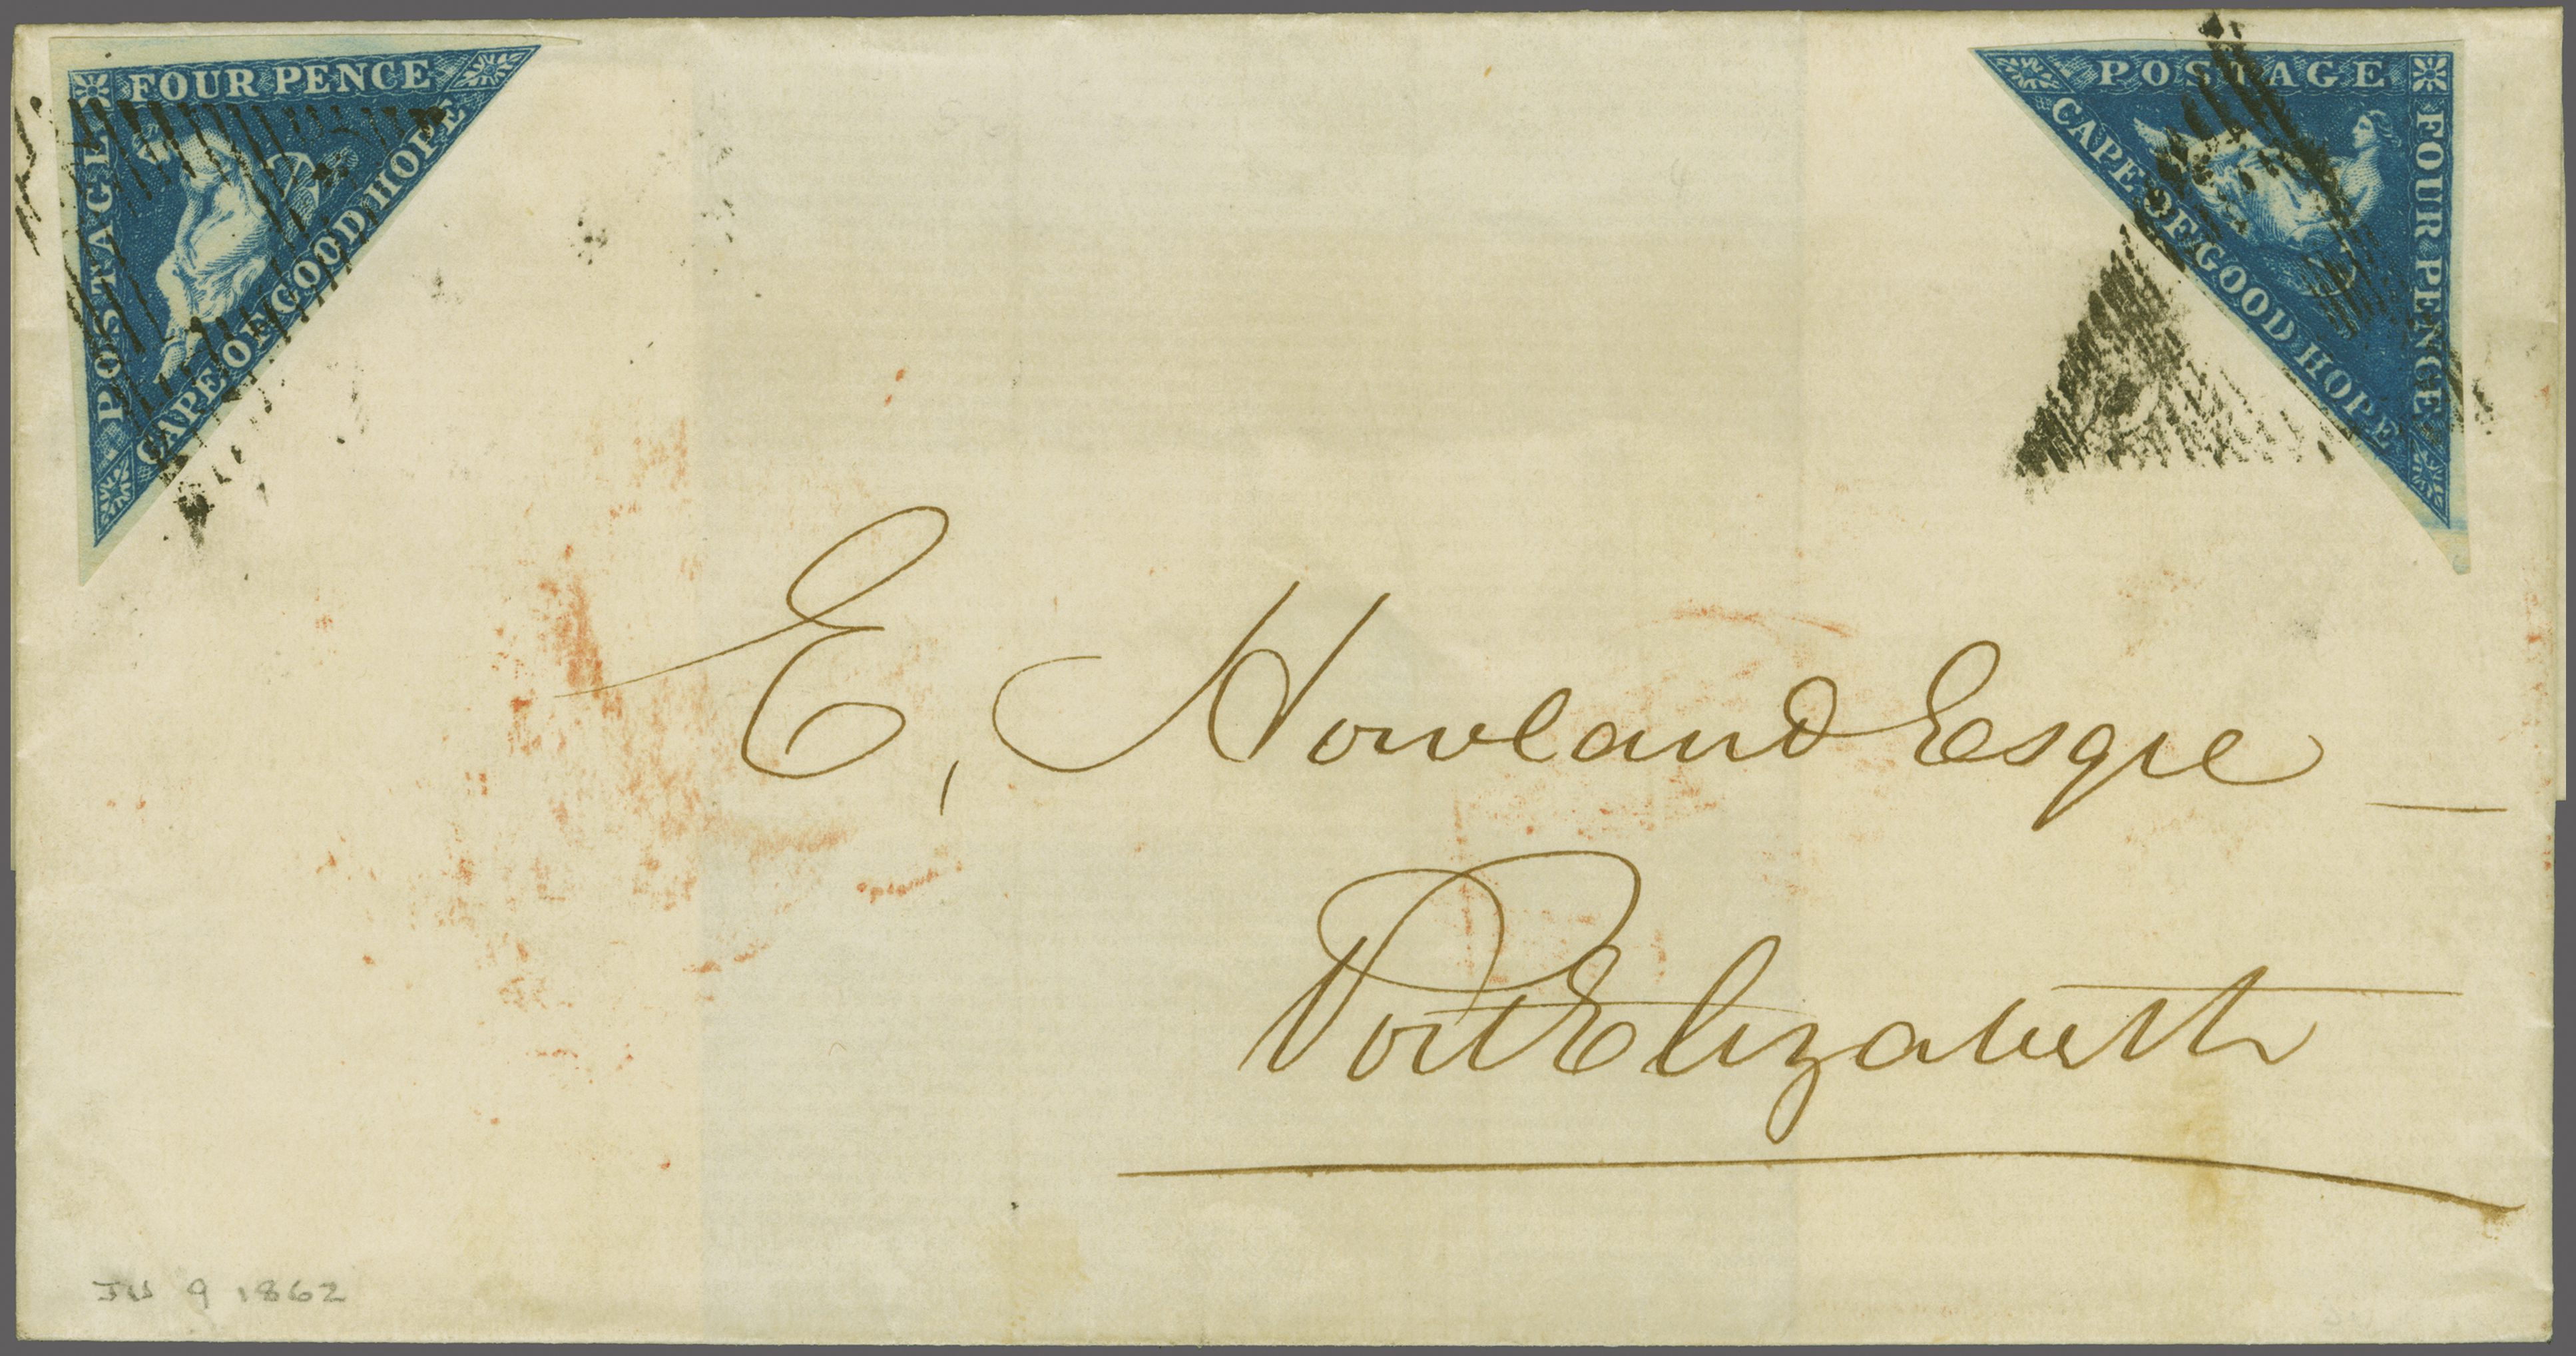 FOUR PENCE
POSTAGE
CAPE OF GOOD HOPE
POSTAGE
FOUR PENCE
CAPE OF GOOD HOPE
E, Howland Esqre
Port Elizabeth
JU 9 1862